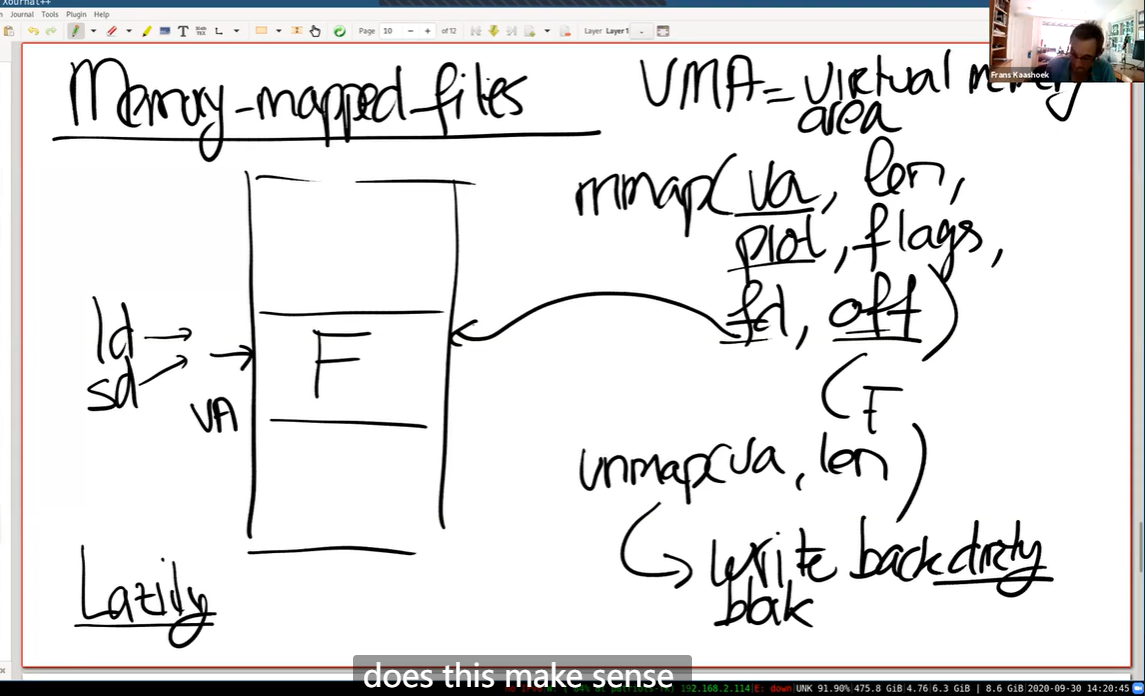 Xournal++
Journal Tools Plugin Help
Page 10 of 12 Layer Layer 1
Frans Kaashoek
Memory-mapped files
VMA = virtual memory
area
mmap(va, len,
prot, flags,
fd, off)
ld
sd
VA
F
(F
unmap(va, len)
write back dirty
block
Lazily
does this make sense
192.168.2.114 E: down UNK 91.90% 475.8 GiB 4.76 6.3 GiB | 8.6 GiB 2020-09-30 14:20:45